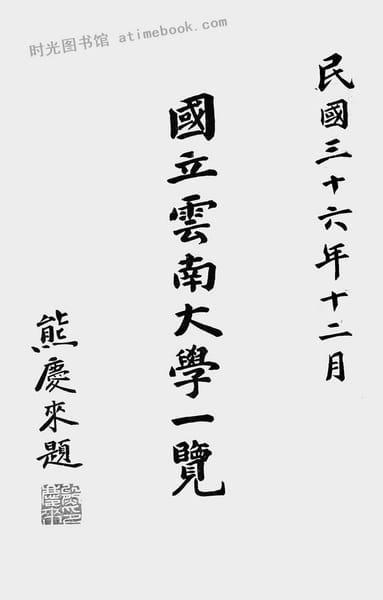 时光图书馆 atimebook.com
民國三十六年十二月
國立雲南大學一覽
熊慶來題